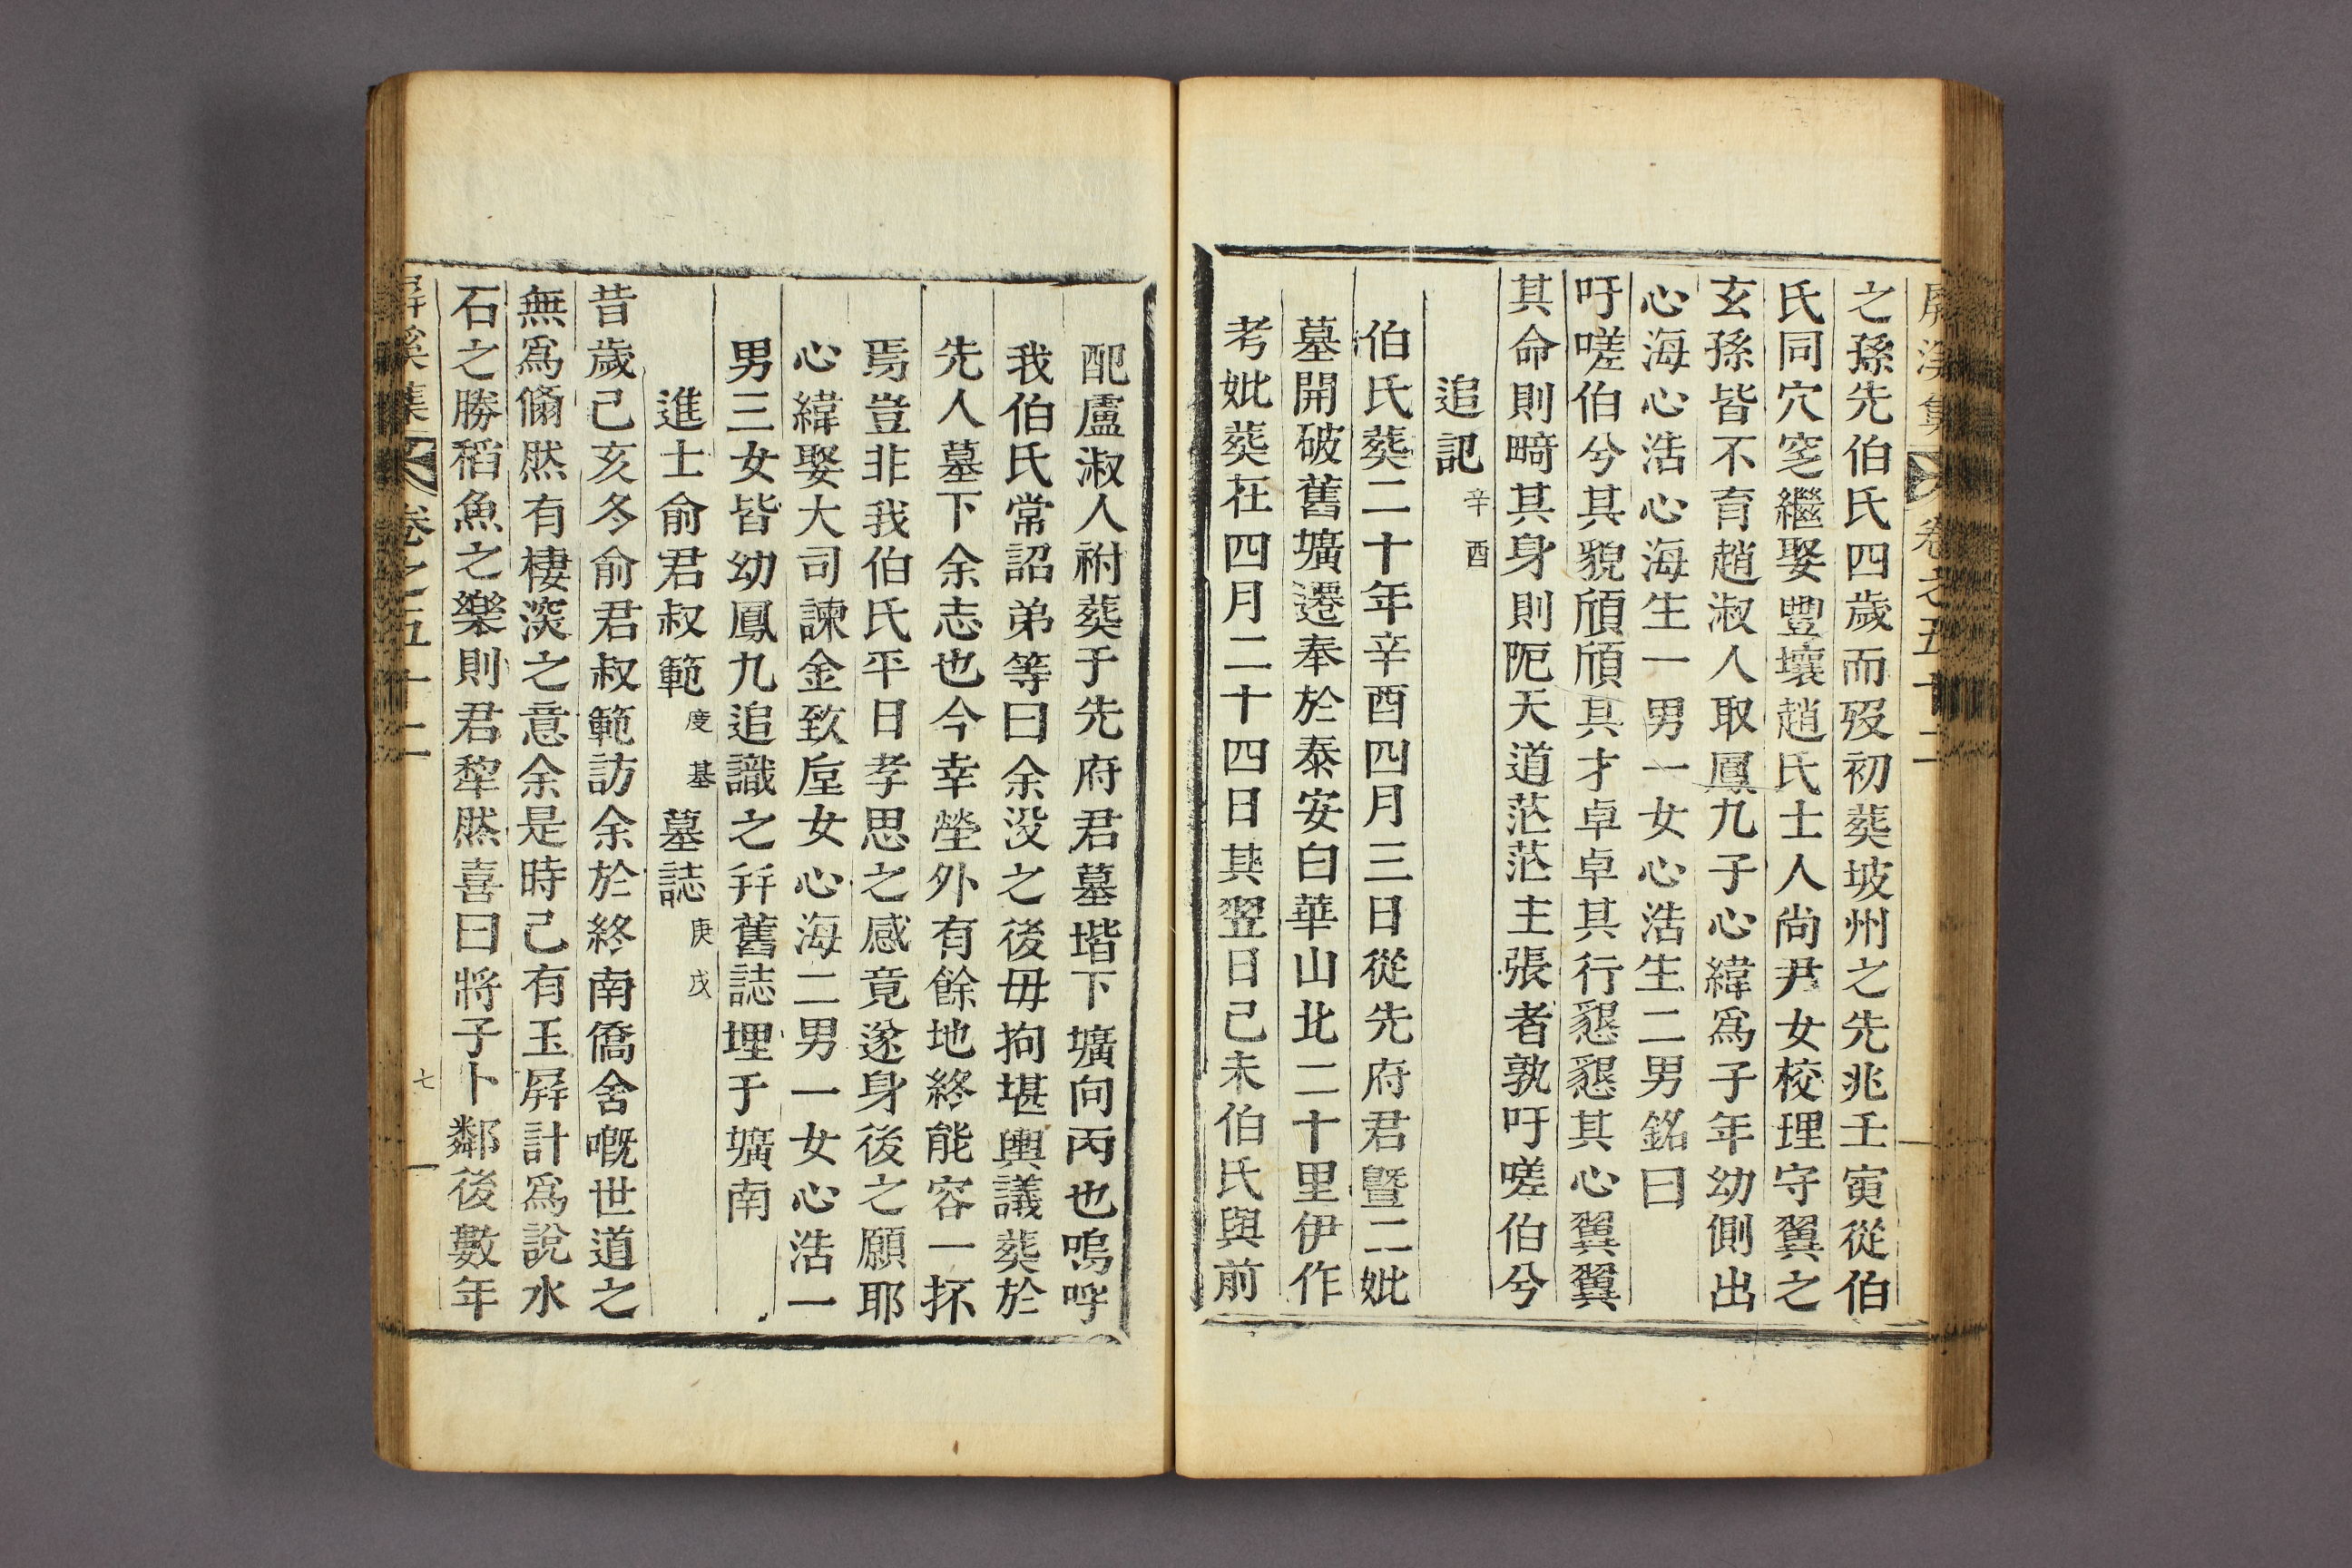 屛溪集 卷之五十二
之孫先伯氏四歲而歿初葬坡州之先兆壬寅從伯
氏同穴窆繼娶豐壤趙氏士人尙尹女校理守翼之
玄孫皆不育趙淑人取鳳九子心緯爲子年幼側出
心海心浩心海生一男一女心浩生二男銘曰
吁嗟伯兮其貌頎頎其才卓卓其行懇懇其心翼翼
其命則畸其身則阨天道茫茫主張者孰吁嗟伯兮
追記辛酉
伯氏葬二十年辛酉四月三日從先府君曁二妣
墓開破舊壙遷奉於泰安白華山北二十里伊作
考妣葬在四月二十四日其翌日己未伯氏與前
配盧淑人祔葬于先府君墓堦下壙向丙也嗚呼
我伯氏常詔弟等曰余没之後毋拘堪輿議葬於
先人墓下余志也今幸塋外有餘地終能容一抔
焉豈非我伯氏平日孝思之感竟遂身後之願耶
心緯娶大司諫金致垕女心海二男一女心浩一
男三女皆幼鳳九追識之幷舊誌埋于壙南
進士俞君叔範度基墓誌庚戌
昔歲己亥冬俞君叔範訪余於終南僑舍嘅世道之
無爲翛然有棲淡之意余是時己有玉屛計爲說水
石之勝稻魚之樂則君犂然喜曰將子卜鄰後數年
屛溪集 卷之五十二 七